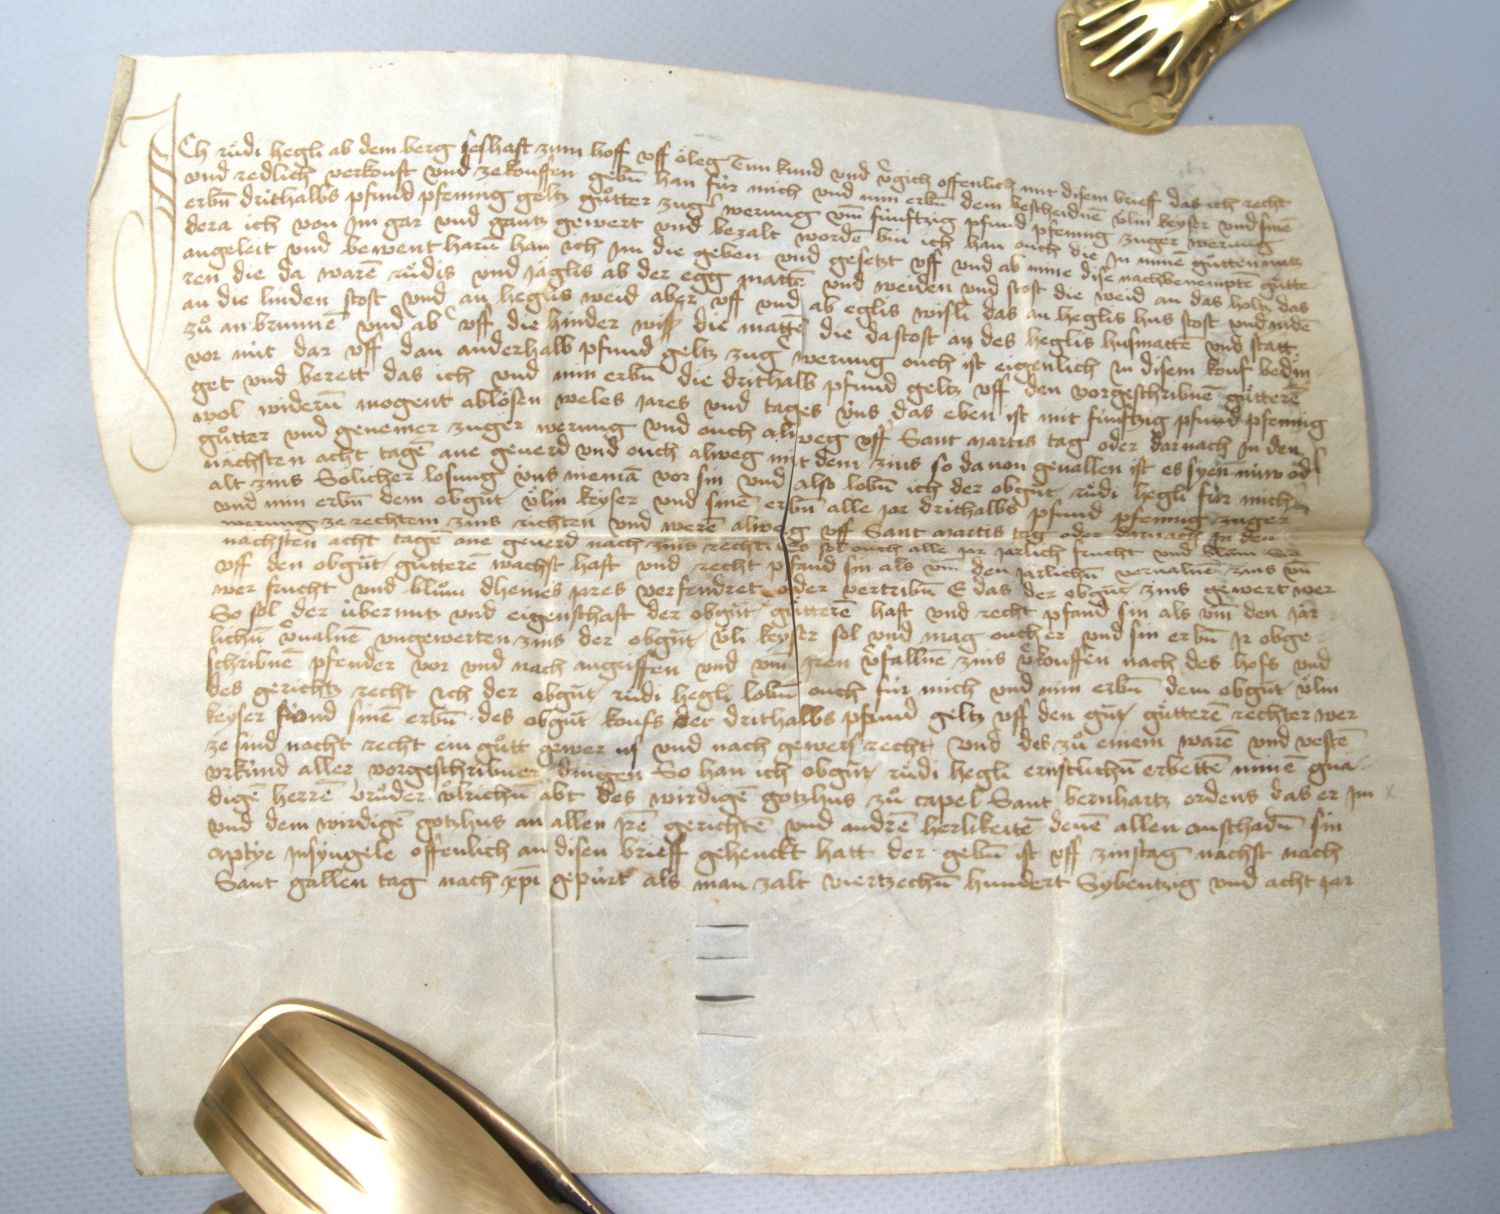 Ich růdi hegli ab dem berg seshaft zum hoff uff öleg Tun kund und v̄gich offenlich mit disem brieff das ich recht
und redlich verkouft und ze kouffen gebn̄ han für mich und min erbn̄ dem bescheidnē ůlin keyser und sinē
erbn̄ drithalbs pfund pfenning geltz gůtter zugˢ werung vm̄ fünftzig pfund pfening zuger werung
dera ich von Im gar und gantz gewert und bezalt wordē bin ich han ouch die In minē gůttern nutz
angeleit und bewent harū han ich Im die geben und gesetzt uff und ab mine dise nachbenemptē gůtte
ren die da warē růdis und jäglis ab der egg mattē und weiden und stost die weid an das holtz das
an die linden stost und an heglis weid aber uff und ab eglis wisli das an heglis hus stost und nidē
zů an brunnē und ab uff die hinder wiss die mattē die da stost an des heglis husmattē und statt
vor mit dar uff dan anderhalb pfund geltz zugˢ werung ouch ist eigenlich In disem kouf bedin
get und berett das ich und min erbn̄ die drithalb pfund geltz uff den vorgeschribnē gůtterē
wol widerū mogent ablösen weles jares und tages üns das eben ist mit fünftzig pfund pfening
gůtter und genemer zuger werung und ouch alweg uff Sant martis tag oder darnach In den
nächsten acht tagē ane geuerd und ouch alweg mit dem zins so da non geuallen ist es syen nüw od
alt zins Sölicher losung üns niemā vor sin und also lobn̄ ich der obgūt růdi hegli für mich
und min erbn̄ dem obgūt ůlin keyser und sinē erbn̄ alle jar drithalbs pfund pfening zuger
werung ze rechtem zins richten und werē alweg uff Sant martis tag oder darnach In den
nächsten acht tagē ane geuerd nach zins recht es sol ouch alle jar järlich frucht und blům so
uff den obgūt gütterē wachst haft und recht pfand sin als vm̄ den järlichn̄ vervalnē zins un̄
wer frucht und blům dheines jares verfendret oder vertribn̄ E das der obgūt zins gewert wer
So sol der übernutz und eigenschaft der obgūt gütterē haft und recht pfand sin als vm̄ den jär
lichn̄ v̄ualnē ungewerten zins der obgūt ůli keyser sol und mag ouch er und sin erbn̄ Ir obge
schribnē pfender vor und nach angriffen und vm̄ Iren v̄fallnē zins v̄kouffen nach des hofs und
des gerichtz recht Ich der obgūt růdi hegli lobn̄ ouch für mich und min erbn̄ dem obgūt ůlin
keyser und sinē erbn̄ des obgūt koufs der drithalbs pfund geltz uff den egūt gůtterē rechter wer
ze sind nacht recht ein gůtt gewer ist und nach gewers recht Und des zů einem warē und vestē
urkünd aller vorgeschribner dingen So han ich obgūt růdi hegli ernstlichn̄ erbettē minē gnä
digē herrē brůder ůlrichn̄ abt des wirdigē gotzhus zů capel Sant bernhartz ordens das er Im
und dem wirdigē gotzhus an allen Irē gerichtē und andrē herlikeitē denē allen anschadn̄ sin
aptye Insyngele offenlich an disen brieff gehenckt hatt der gebn̄ ist uff zinstag nächst nach
Sant gallen tag nach xpi gepürt als man zalt viertzechn̄ hundert Sybentzig und acht jar